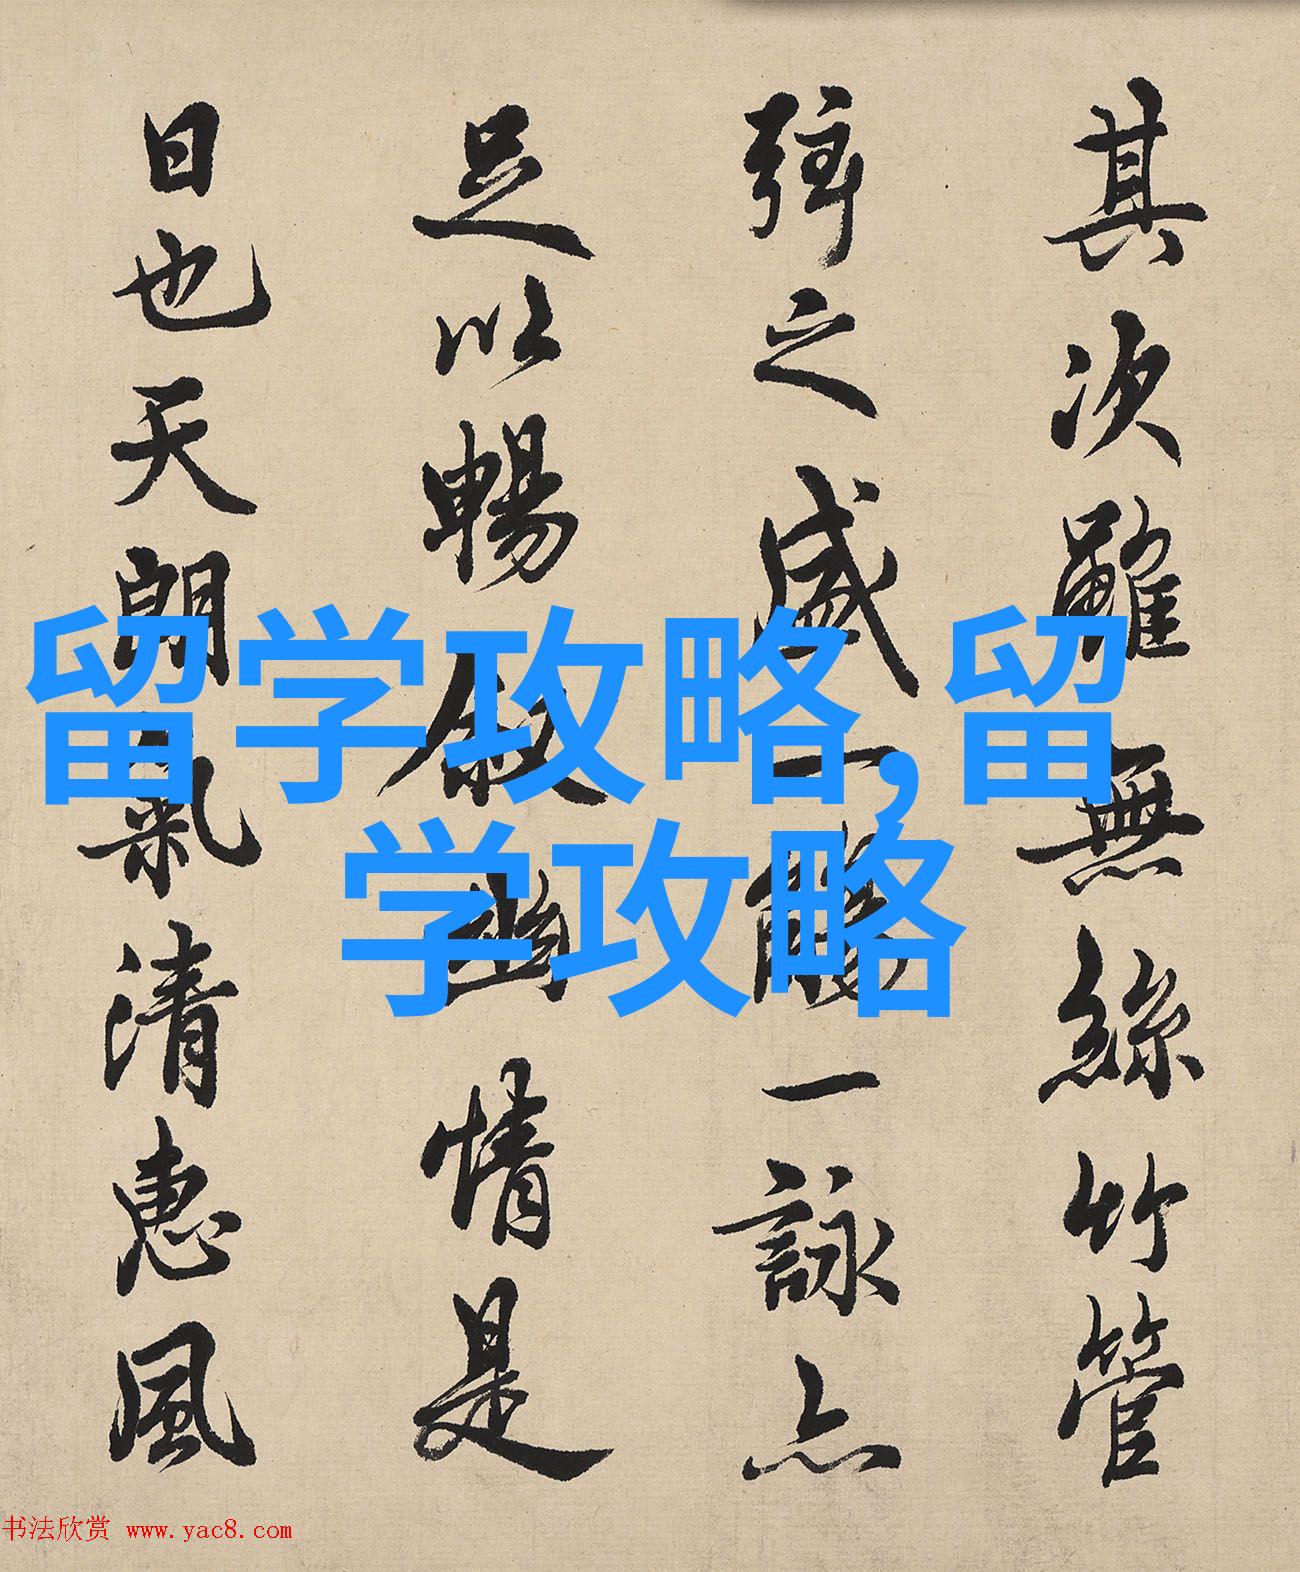 其次雖無絲竹管
弦之盛一觴一詠亦
足以暢敘幽情是
日也天朗氣清惠風
留学攻略,留
学攻略
书法欣赏 www.yac8.com